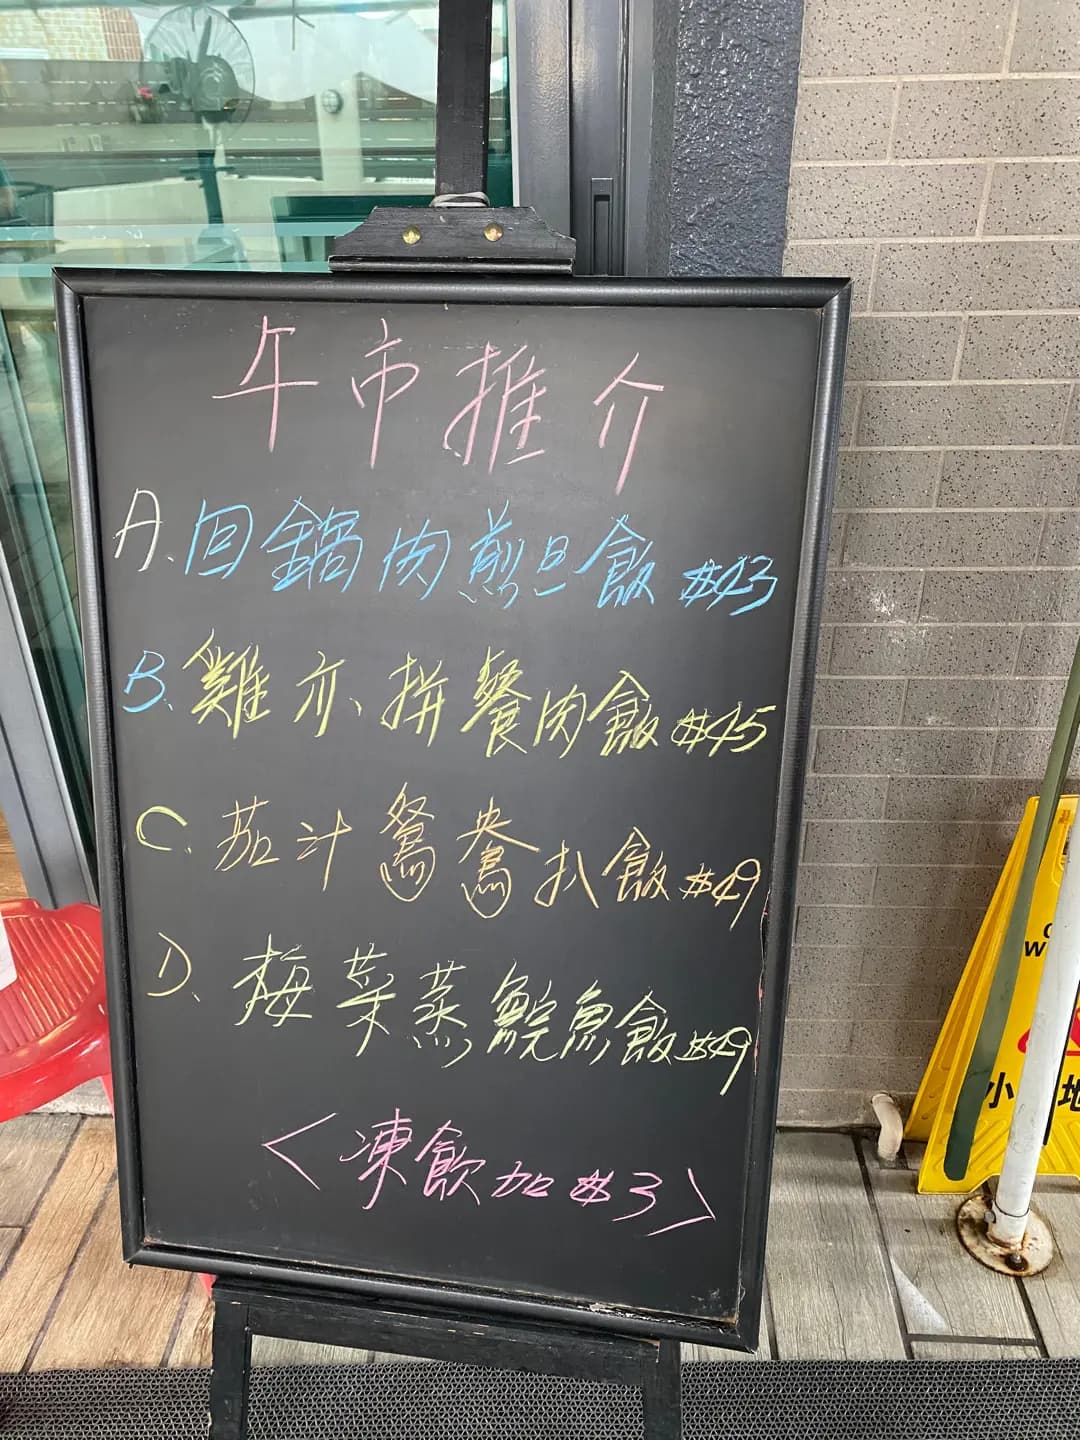 午市推介
A. 回鍋肉煎旦飯 $43
B. 雞亦拼餐肉飯 $45
C. 茄汁鴛鴦扒飯 $49
D. 梅菜蒸鯇魚飯 $49
<凍飲加 $3>
小 地